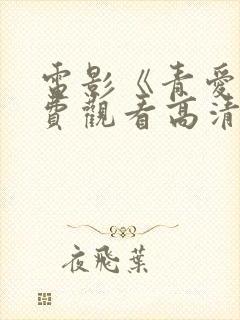 電影《青愛
費觀看高清
夜飛葉